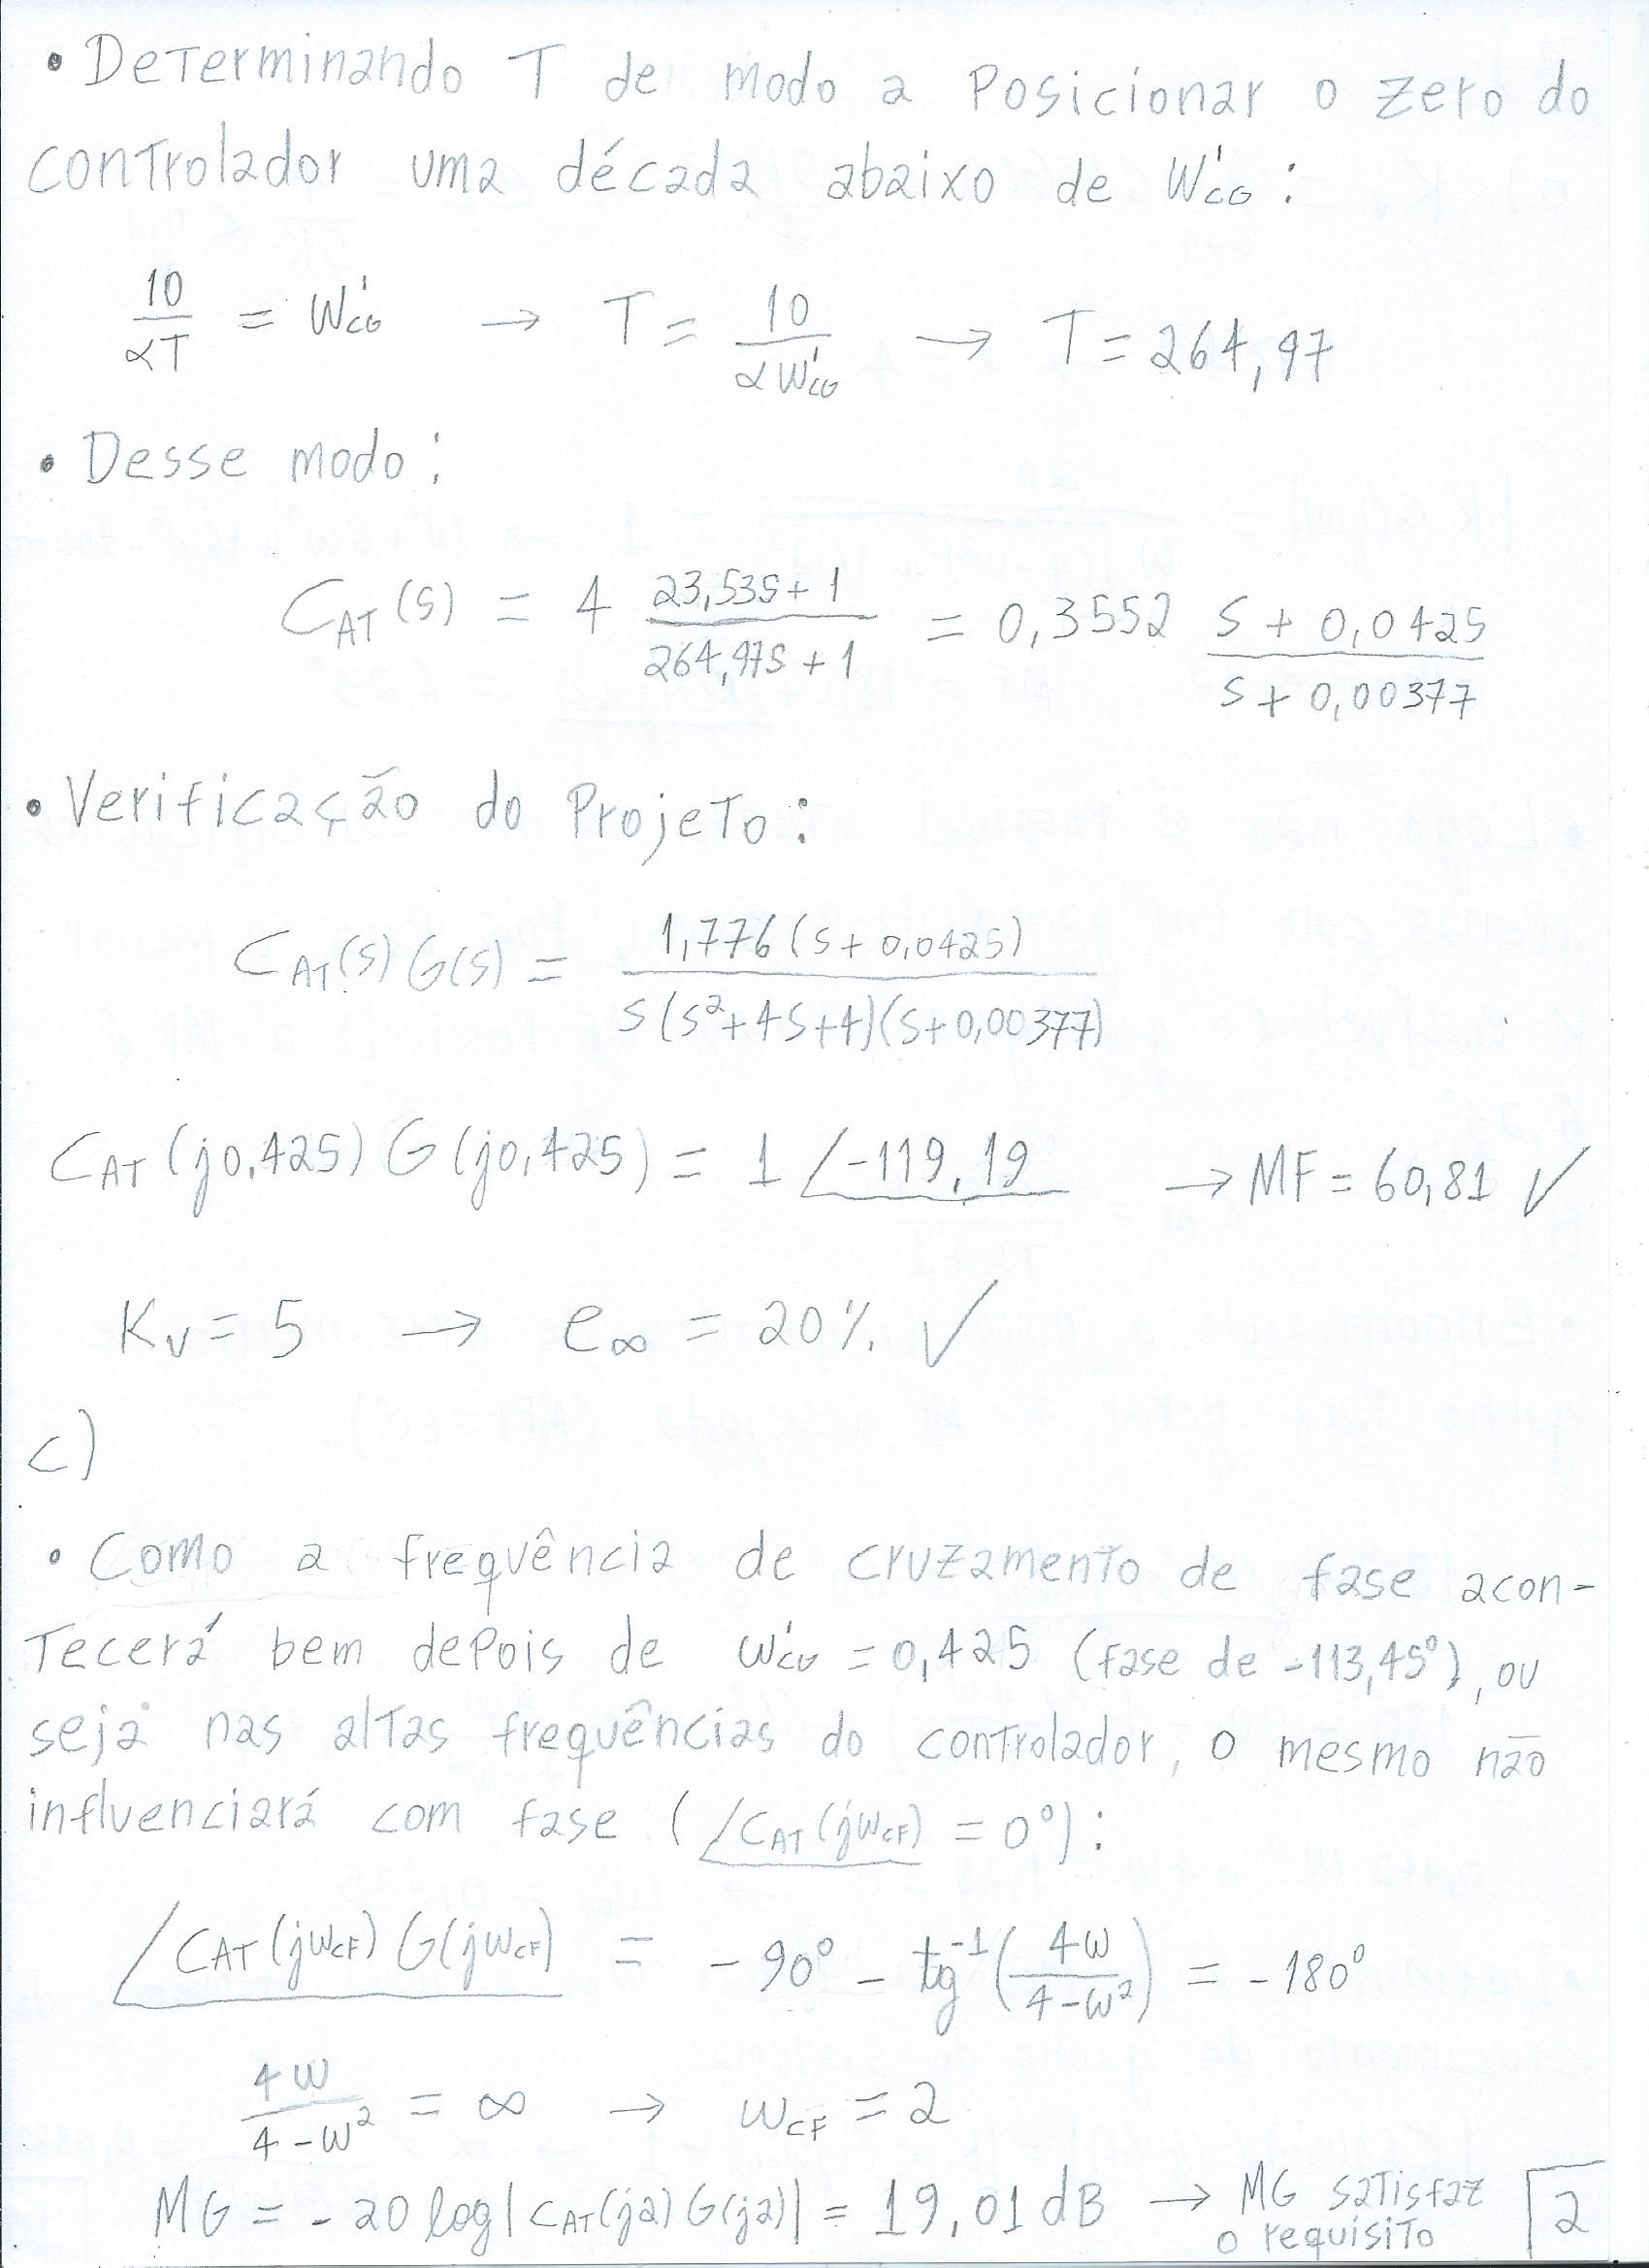 • Determinando T de modo a posicionar o zero do
controlador uma década abaixo de W'cG :
10/αT = W'cG → T = 10/αW'cG → T = 264,97
• Desse modo :
CAT(s) = 4 (23,53s + 1)/(264,97s + 1) = 0,3552 (s + 0,0425)/(s + 0,00377)
• Verificação do Projeto :
CAT(s) G(s) = 1,776(s + 0,0425)/s(s²+4s+4)(s+0,00377)
CAT(j0,425) G(j0,425) = 1 ∠-119,19 → MF = 60,81 ✓
Kv = 5 → e∞ = 20% ✓
c)
• Como a frequência de cruzamento de fase acon-
tecerá bem depois de W'cG = 0,425 (fase de -113,45°), ou
seja nas altas frequências do controlador, o mesmo não
influenciará com fase (∠CAT(jWCF) = 0°) :
∠CAT(jWCF) G(jWCF) = -90° - tg⁻¹(4W/(4-W²)) = -180°
4W/(4-W²) = ∞ → WCF = 2
MG = -20 log|CAT(j2) G(j2)| = 19,01 dB → MG satisfaz
o requisito
2